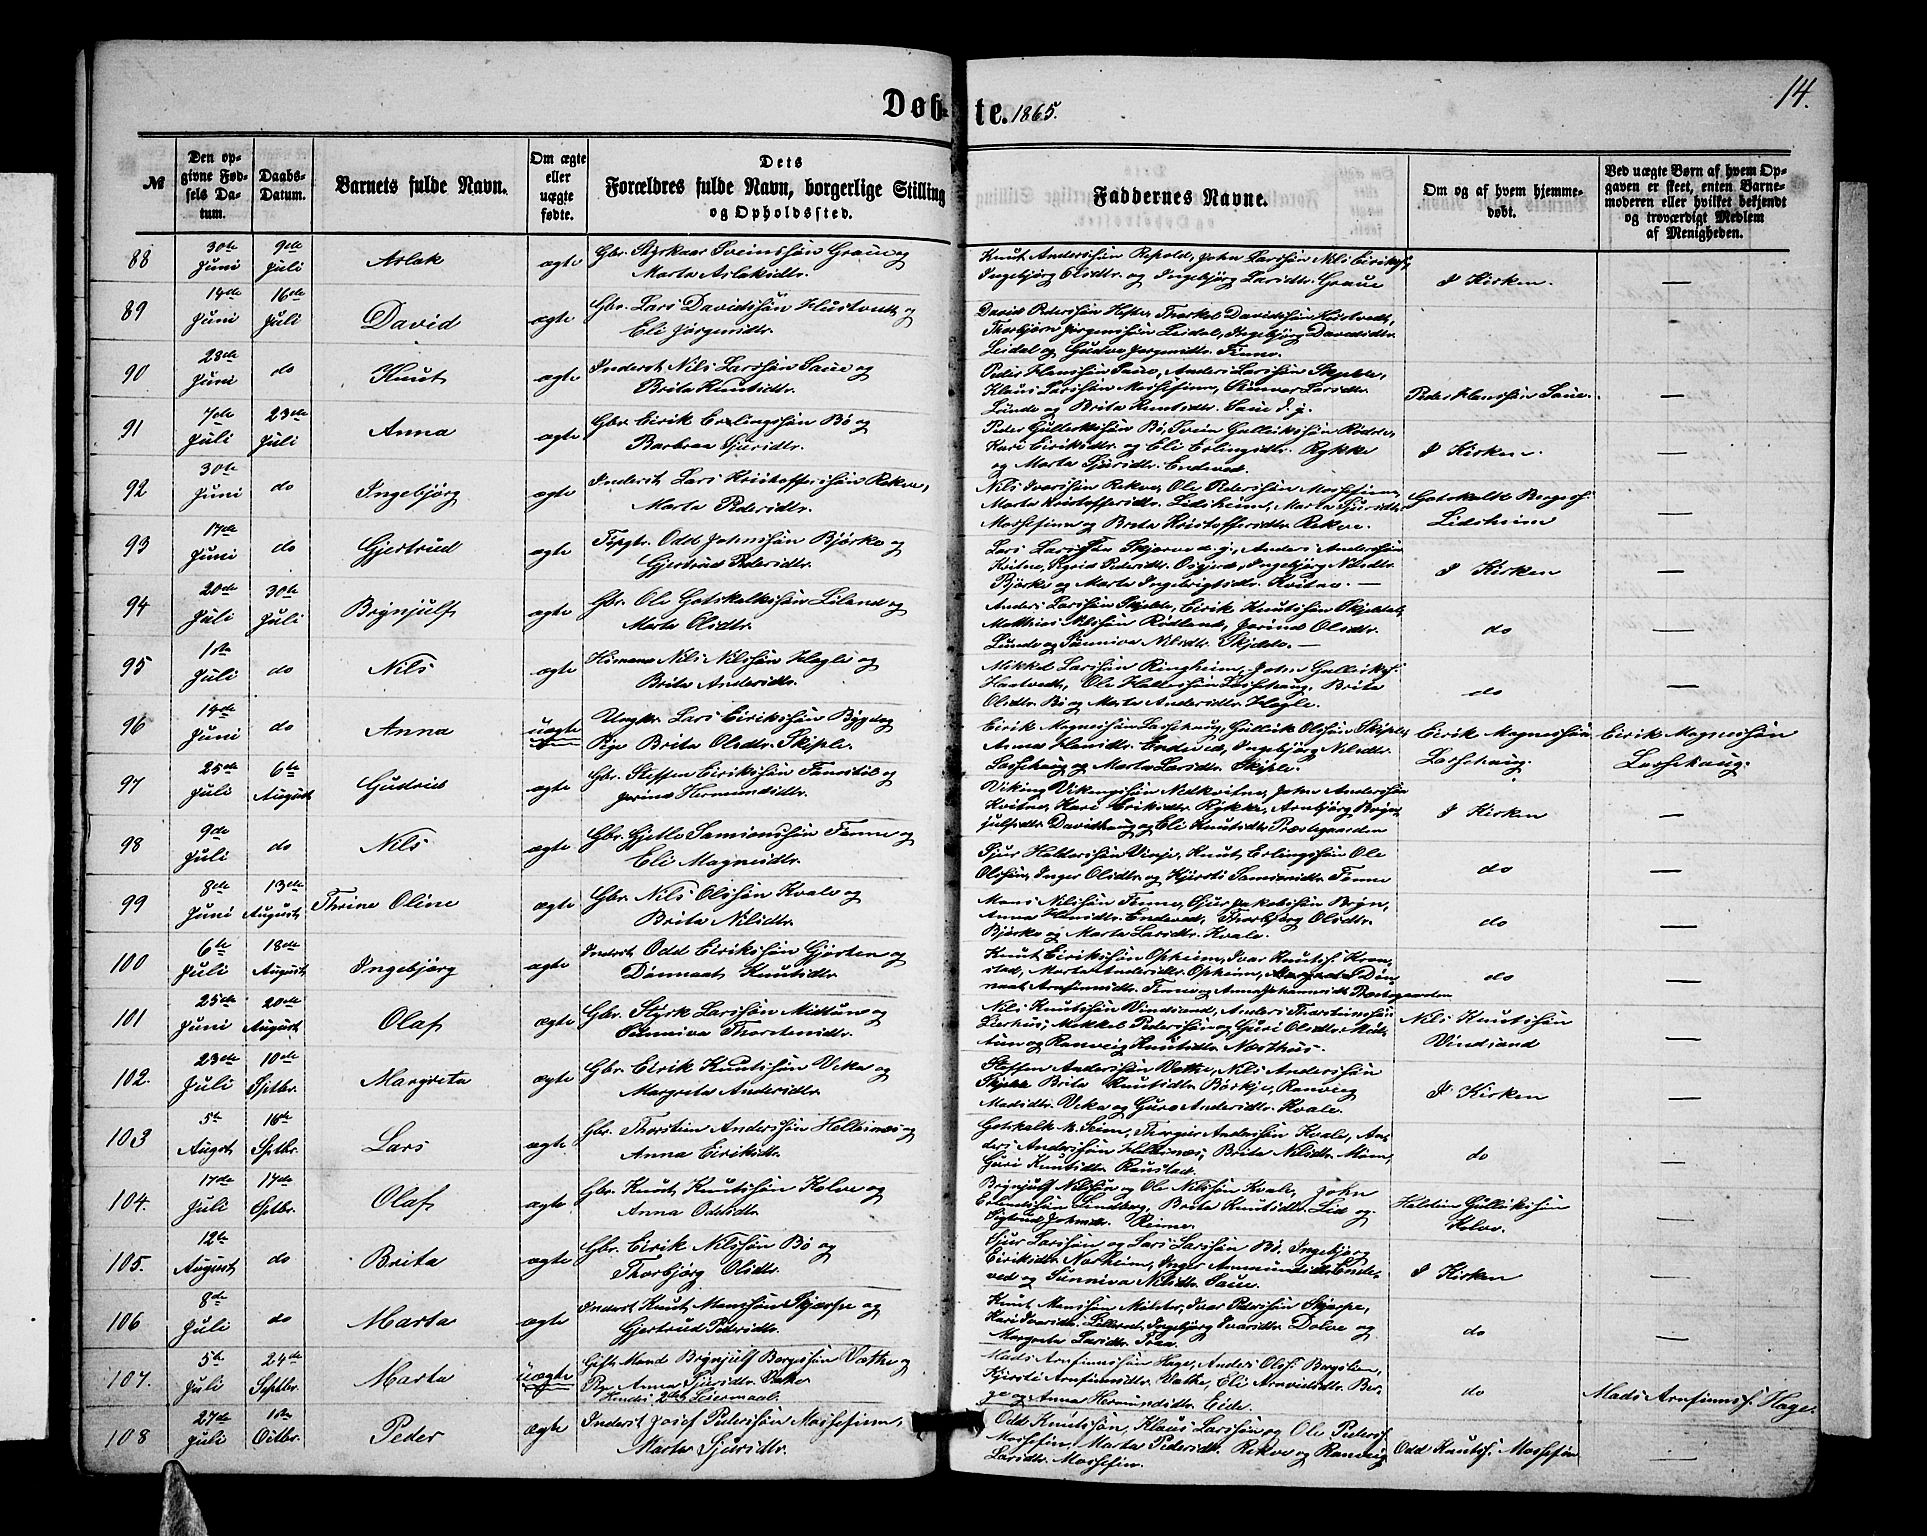 14.
Døbte. 1865.
№
Den opgivne Fødsels Datum.
Daabs-Datum.
Barnets fulde Navn.
Om ægte eller uægte fødte.
Dets Forældres fulde Navn, borgerlige Stilling og Opholdssted.
Faddernes Navne.
Om og af hvem hjemmedøbt.
Ved uægte Børn af hvem Opgaven er skeet, enten Barnemoderen eller hvilket bekjendt og troværdigt Medlem af Menigheden.
88 30te Juni 9de Juli Aslak ægte Gbr. Styrkaar Sveinshøn Graue og
Marta Aslaksdtr.
Knut Andershøn Repold, John Larshøn Nils Eiriks.,
Ingebjørg Elsdtr. og Ingebjørg Larsdtr. Graue
I Kirken. —
89 14de Juni 16de Juli David ægte Gbr. Lars Davidshøn Hustvedt og
Eli Jørgensdtr.
David Pedershøn Hefte, Thorkel Davidshøn Hustvedt,
Thorbjørn Jørgenshøn Leidal, Ingebjørg Davidsdtr.
Leidal og Gudve Jørgensdtr. Finne.
90 28de Juni do Knut ægte Inderst Nils Larshøn Saue og
Brita Knutsdtr.
Peder Hanshøn Saue, Anders Larshøn Skjelde,
Klaus Larshøn Mossefinn, Gunvor Larsdtr.
Lunde og Brita Knutsdtr. Saue d. y.
Peder Hanshøn Saue. —
91 7de Juli 23de Juli Anna ægte Gbr. Eirik Erlingshøn Bø og
Barbraa Sjursdtr.
Peder Gulleikshøn Bø, Svein Gulleikshøn Rødne,
Kari Eiriksdtr. og Eli Erlingsdtr. Rykke
og Marta Sjursdtr. Endeved.
I Kirken. —
92 30te Juni do Ingebjørg ægte Inderst Lars Kristoffershøn Rekve,
Marta Pedersdtr.
Nils Ivarshøn Rekve, Ole Pedershøn Mossefinn,
Marta Kristoffersdtr. Lidsheim, Marta Sjursdtr.
Mossefinn og Brita Kristoffersdtr. Rekve.
Gotskalk Bergesh.
Lidsheim —
93 17de Juni do Gjertrud ægte Odd Johnshøn Bjørke og
Gjertrud Pedersdtr.
Lars Larshøn Skjerve d. y., Anders Andershøn
Kvitne, Sigrid Pedersdtr. Ingebjørg Nilsdtr.
Bjørke og Marta Ingebrigtsdtr. Kvitne. —
I Kirken —
94 20de Juli 30te Juli Brynjulf ægte Gbr. Ole Gotskalkshøn Liland og
Marta Olsdtr.
Anders Larshøn Skjelde, Eirik Knutshøn Skjelde,
Mathias Nilshøn Rødland, Jorine Olsdtr.
Lunde og Sunniva Nilsdtr. Skjelde. —
do —
95 1ste Juli do Nils ægte Husmand Nils Nilshøn Hegle og
Brita Andersdtr.
Mikkel Larshøn Ringheim, John Gulleiksh.
Hustvedt, Ole Haldorshøn Lassehaug, Brita
Olsdtr. Bø og Marta Andersdtr. Hegle.
do —
96 14de Juni do Anna uægte Ungkr. Lars Eirikshøn Bygd og
Pige Brita Olsdtr. Skiple.
Eirik Magneshøn Lassehaug, Gulleik Olshøn Skiple,
Anna Hansdtr. Endeved, Ingebjørg Nilsdtr.
Lassehaug og Marta Larsdtr. Skiple.
Eirik Magneshøn
Lassehaug.
Eirik Magneshøn
Lassehaug.
97 25de Juli 6te August Gudrid ægte Gbr. Steffen Eirikshøn Fansteil og
Jorine Hermundsdtr.
Viking Vikingshøn Nedkvitne, John Andershøn
Kvitne, Kari Eiriksdtr. Rykke, Arnbjørg Brynjulfsdtr.
Davidhaug og Eli Knutsdtr. Præstegaarden
I Kirken —
98 9de Juli do Nils ægte Gbr. Gjetle Samsonshøn Finne og
Eli Magnesdtr.
Sjur Haldorshøn Vinje, Knut Erlingshøn Ole
Olshøn, Inger Olsdtr. og Kjersti Samsonsdtr. Finne
do —
99 8de Juni 13de August Thrine Oline ægte Gbr. Nils Olshøn Kvale og
Brita Nilsdtr.
Mons Nilshøn Finne, Sjur Jakobshøn Bryn,
Anna Hansdtr. Endeved, Thorbjørg Olsdtr.
Bjørke og Marta Larsdtr. Kvale.
do —
100 6te Juli 18de August Ingebjørg ægte Inderst Odd Eirikshøn Gjersten og
Dønnaat Knutsdtr.
Knut Eirikshøn Opheim, Ivar Knutsh. Kronstad,
Marta Andersdtr. Opheim, Dønnaat
Arnfinnsdtr. Finne og Anna Johannesdtr. Præstegaarden
do —
101 25de Juni 20de August Olaf ægte Gbr. Styrk Larshøn Miltun og
Sunniva Thorstensdtr.
Nils Knutshøn Vindsand, Anders Thorstenshøn
Lierhus, Mikkel Pedershøn og Guri Olsdtr. Miltun
og Ranveig Knutsdtr. Norhus.
Nils Knutshøn
Vindsand —
102. 23de Juli 10de Sptbr. Margreta ægte Gbr. Eirik Knutshøn Veka og
Margreta Andersdtr.
Steffen Andershøn Væthe, Nils Andershøn
Skjelde Brita Knutsdtr. Børkje, Ranveig
Madsdtr. Veka og Guro Andersdtr. Kvale.
I Kirken —
103 5te August 16de Sptbr. Lars ægte Gbr. Thorstein Andershøn Hellesnes og
Anna Eiriksdtr.
Gotskalk M. Seim, Thorgier Andershøn Kvale, Anders
Andershøn Hellesnes, Brita Nilsdtr. Møen,
Guri Knutsdtr. Raustad.
do —
104. 17de Juli 17de Sptbr. Olaf ægte Gbr. Knut Knutshøn Kolve og
Anna Oddsdtr.
Brynjulf Nilshøn og Ole Nilshøn Kvale, John
Erlandshøn Lindberg, Brita Knutsdtr. Lid og
Sigtrud Johnsdr. Reime.
Haldor Gulleikshøn
Kolve. —
105. 12te August do Brita ægte Gbr. Eirik Nilshøn Bø og
Thorbjørg Olsdtr.
Sjur Larshøn og Lars Larshøn Bø, Ingebjørg
Eiriksdtr. Norheim, Inger Aamundsdtr. Endeved
og Sunniva Nilsdtr. Saue.
I Kirken —
106 8de Juli do Marta ægte Inderst Knut Monshøn Skjerpe og
Gjertrud Pedersdtr.
Knut Monshøn Mølster, Ivar Pedershøn Skjerpe,
Kari Ivarsdtr. Lillered, Ingebjørg Ivarsdtr. Dolve og
Margreta Larsdtr. Traa.
do —
107. 5te Juli 24de Septbr. Marta uægte Gift Mand Brynjulf Bergeshøn Væthe og
Pige Anna Sjursdtr. Væthe
Hendes 2det Leiermaal
Mads Arnfinnshøn Hage, Anders Olsh. Bergslien,
Kjersti Arnfinnsdtr. Væthe, Eli Arnvidsdtr. Berge
og Anna Hermundsdtr. Eide.
do
Mads Arnfinnsh. Hage.
108 27de Juli 1ste Octbr. Peder ægte Inderst Josef Pedershøn Mossefinn,
Marta Sjursdtr.
Odd Knutshøn, Klaus Larshøn og Ole Pedersh.
Mossefinn, Marta Pedersdtr. Rekve og Ranveig
Larsdtr. Mossefin.
Odd Knutsh. Mossefin —